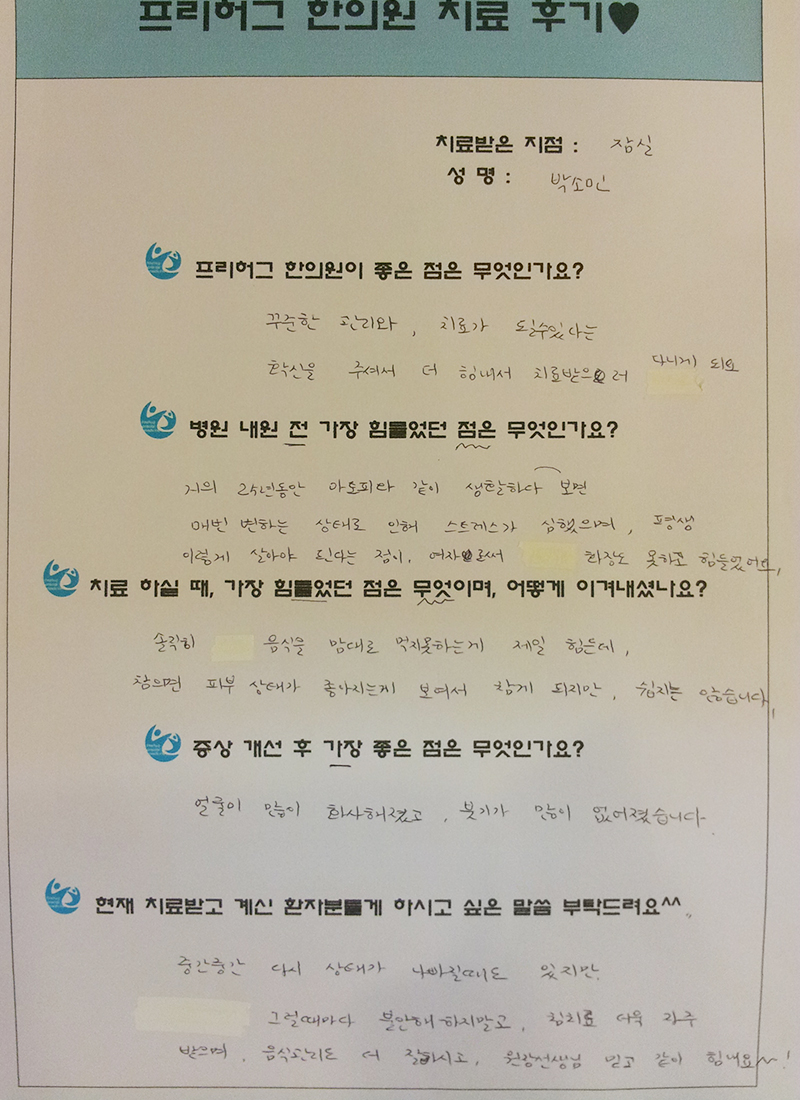 프리허그 한의원 치료 후기♥
치료받은 지점 : 잠실
성 명 : 박소민
프리허그 한의원이 좋은 점은 무엇인가요?
꾸준한 관리와, 치료가 될수있다는
확신을 주셔서 더 힘내서 치료받으러 다니게 되요
병원 내원 전 가장 힘들었던 점은 무엇인가요?
거의 25년동안 아토피와 같이 생활하다 보면
매번 변하는 상태로 인해 스트레스가 심했으며, 평생
이렇게 살아야 된다는 점이, 여자로써 화장도 못하고 힘들었어요,
치료 하실 때, 가장 힘들었던 점은 무엇이며, 어떻게 이겨내셨나요?
솔직히 음식을 맘대로 먹지못하는게 제일 힘든데,
참으면 피부 상태가 좋아지는게 보여서 참게 되지만, 쉽지는 않습니다,
증상 개선 후 가장 좋은 점은 무엇인가요?
얼굴이 많이 화사해졌고, 붓기가 많이 없어졌습니다.
현재 치료받고 계신 환자분들게 하시고 싶은 말씀 부탁드려요^^
중간중간 다시 상태가 나빠질때도 있지만,
그럴때마다 불안해 하지말고, 침치료 더욱 자주
받으며, 음식관리도 더 잘하시고, 원장선생님 믿고 같이 힘내요~!